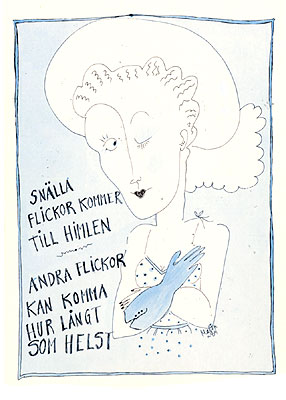 SNÄLLA
FLICKOR KOMMER
TILL HIMLEN
ANDRA FLICKOR
KAN KOMMA
HUR LÅNGT
SOM HELST